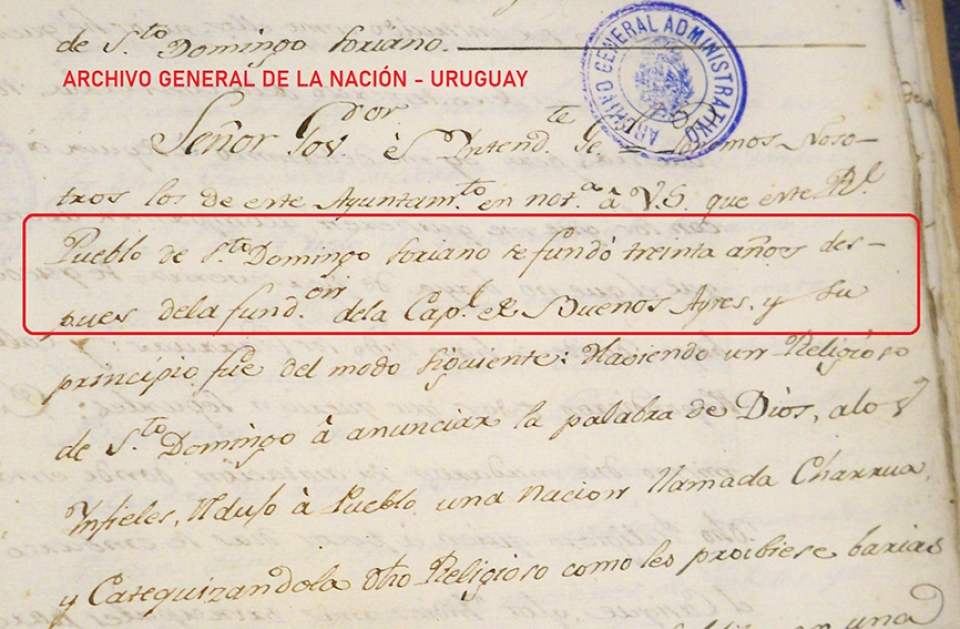 de S.to Domingo Soriano.
ARCHIVO GENERAL DE LA NACIÓN - URUGUAY
ARCHIVO GENERAL ADMINISTRATIVO
Señor Gov.dor è Intend.te Ge Ponemos Noso-
tros los de este Ayuntam.to en not.a à V.S. que este Rl.
Pueblo de S.to Domingo Soriano se fundò treinta años des-
pues dela fund.on dela Cap.l de Buenos Ayres, y su
principio fue del modo siguiente: Haviendo un Religioso
de S.to Domingo à anunciar la palabra de Dios, alos
Infieles, Redujo à Pueblo una nacion llamada Charrua,
y Catequizandola otro Religioso como les proibiese barias
en una